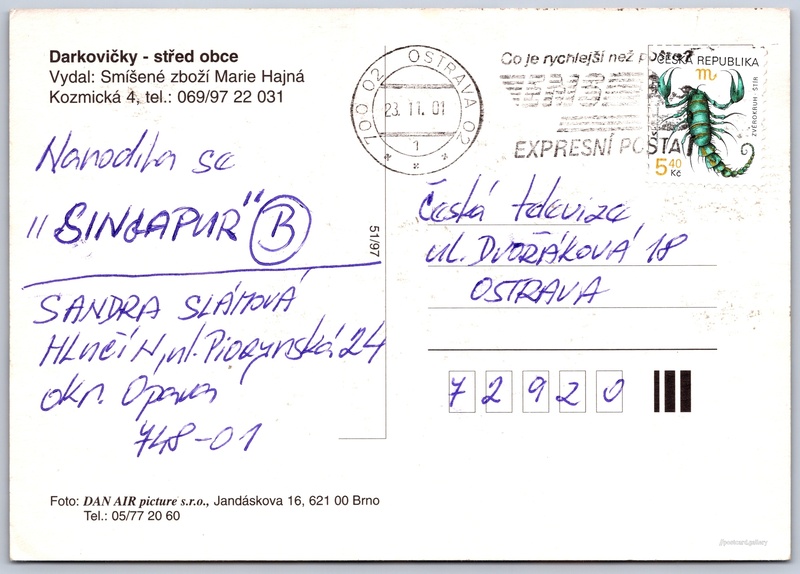 Darkovičky - střed obce
Vydal: Smíšené zboží Marie Hajná
Kozmická 4, tel.: 069/97 22 031
Narodila se
"SINGAPUR" B
SANDRA SLÁMOVÁ
okr. Opava
748-01
51/97
700 02 OSTRAVA 02
23.11.01
1
Co je rychlejší než pošta?
EXPRESNÍ POŠTA
ČESKÁ REPUBLIKA
ZVĚROKRUH - ŠTÍR
5,40 Kč
Česká televize
ul. DVOŘÁKOVÁ 18
OSTRAVA
72920
Foto: DAN AIR picture s.r.o., Jandáskova 16, 621 00 Brno
Tel.: 05/77 20 60